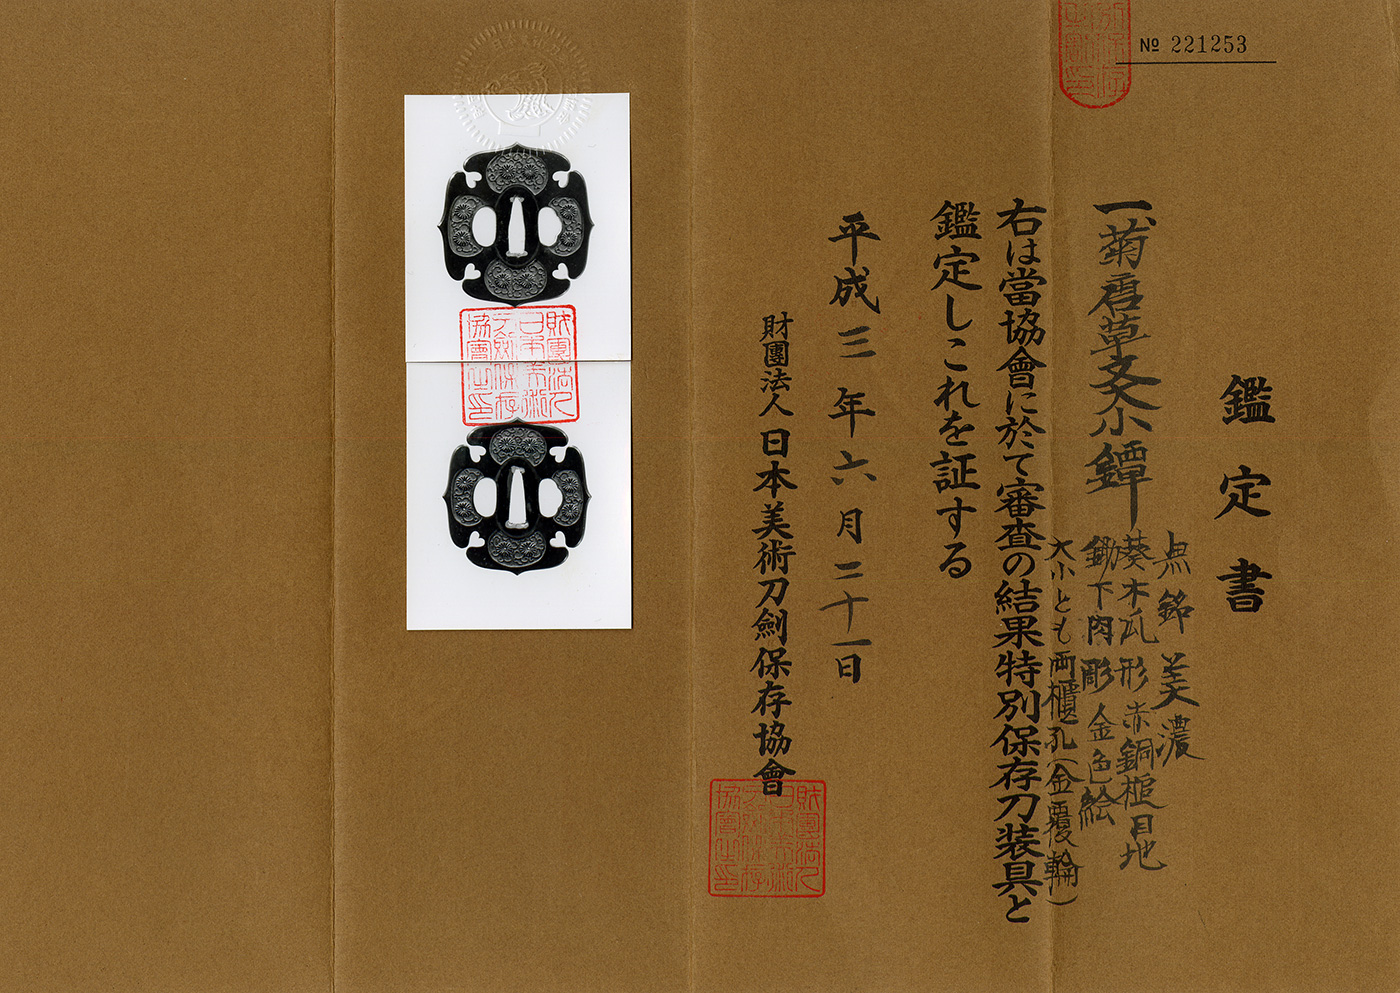 № 221253
鑑定書
一、菊唐草文大小鐔
無銘 美濃
葵木瓜形赤銅槌目地
鋤下肉彫金色絵
大小とも両櫃孔(金覆輪)
右は當協會に於て審査の結果特別保存刀装具と
鑑定しこれを証する
平成三年六月二十一日
財團法人日本美術刀劍保存協會
財團法人
日本美術
刀劍保存
協會之印
財團法人
日本美術
刀劍保存
協會之印